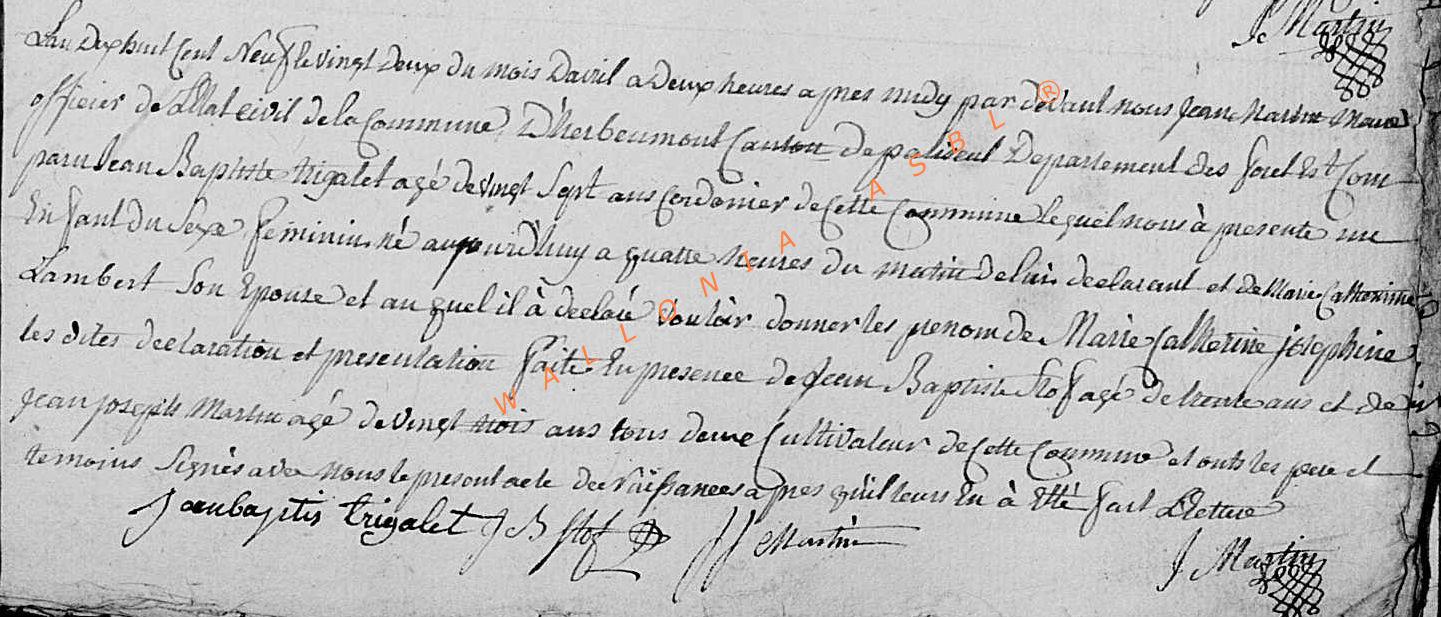 J Martin
L'an dix huit Cent Neuf le vingt Deux du mois D'avril a Deux heures apres midy par devant nous Jean Martin Maire
officier de L'Etat civil de la Commune D'herbeumont Canton de paliseul Departement des foret Est Com
paru Jean Baptiste trigalet agé de vingt Sept ans Cordonier de Cette Commune lequel nous à presenté un
Enfant du Sexe féminin né aujourd'huy a quatre heures du matin de lui declarant et de Marie Catherine
Lambert Son Epouse et auquel il à declaré vouloir donner les prenom de Marie Catherine josephine
les dites declaration et presentation faite En presence de Jean Baptiste Stof agé de trente ans et de
Jean joseph Martin agé de vingt trois ans tous deux Cultivateur de Cette Commune et onts les pere et
temoins Signés avec nous le present acte de naissances apres qu'il leurs En à Eté fait Lecture
Jean baptis trigalet J B Stof J J Martin
J Martin
WALLONIA ASBL ®